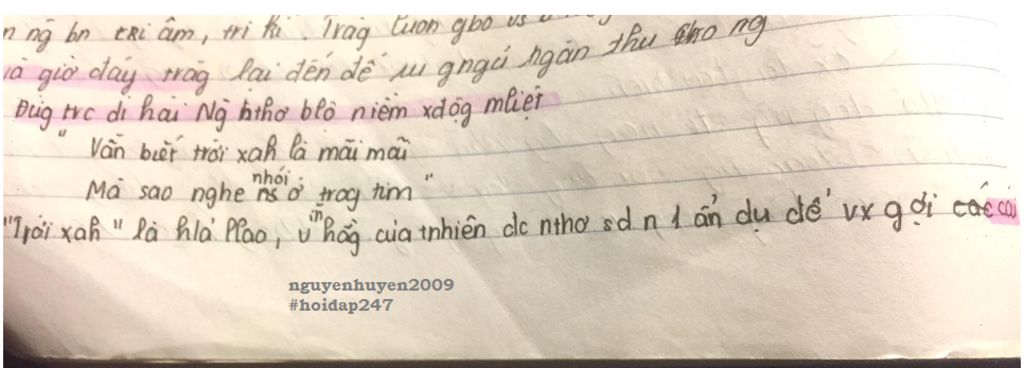 n ng bn tri âm, tri kỉ. Trag luon gbo vs
giờ đây trag lại đến để ngàn thu cho ng
Đưg trc di hài Ng nthơ blộ niềm xdộg mliệt
"Vẫn biết trời xah là mãi mãi
nhói
Mà sao nghe ns ở trog tim"
"Trời xah" là hảh, vhằg của tnhiên dc nthơ sd n 1 ẩn dụ để vx gợi các
nguyenhuyen2009
#hoidap247